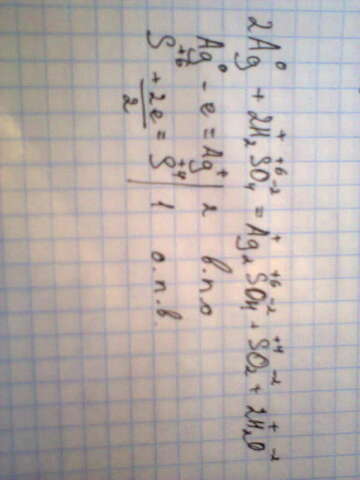 2Ag⁰ + 2H₂⁺S⁺⁶O₄⁻² = Ag₂⁺S⁺⁶O₄⁻² + S⁺⁴O₂⁻² + 2H₂⁺O⁻²
Ag⁰ - e = Ag⁺ | 2 в.п.о
S⁺⁶ + 2e = S⁺⁴ | 1 о.п.в.
2